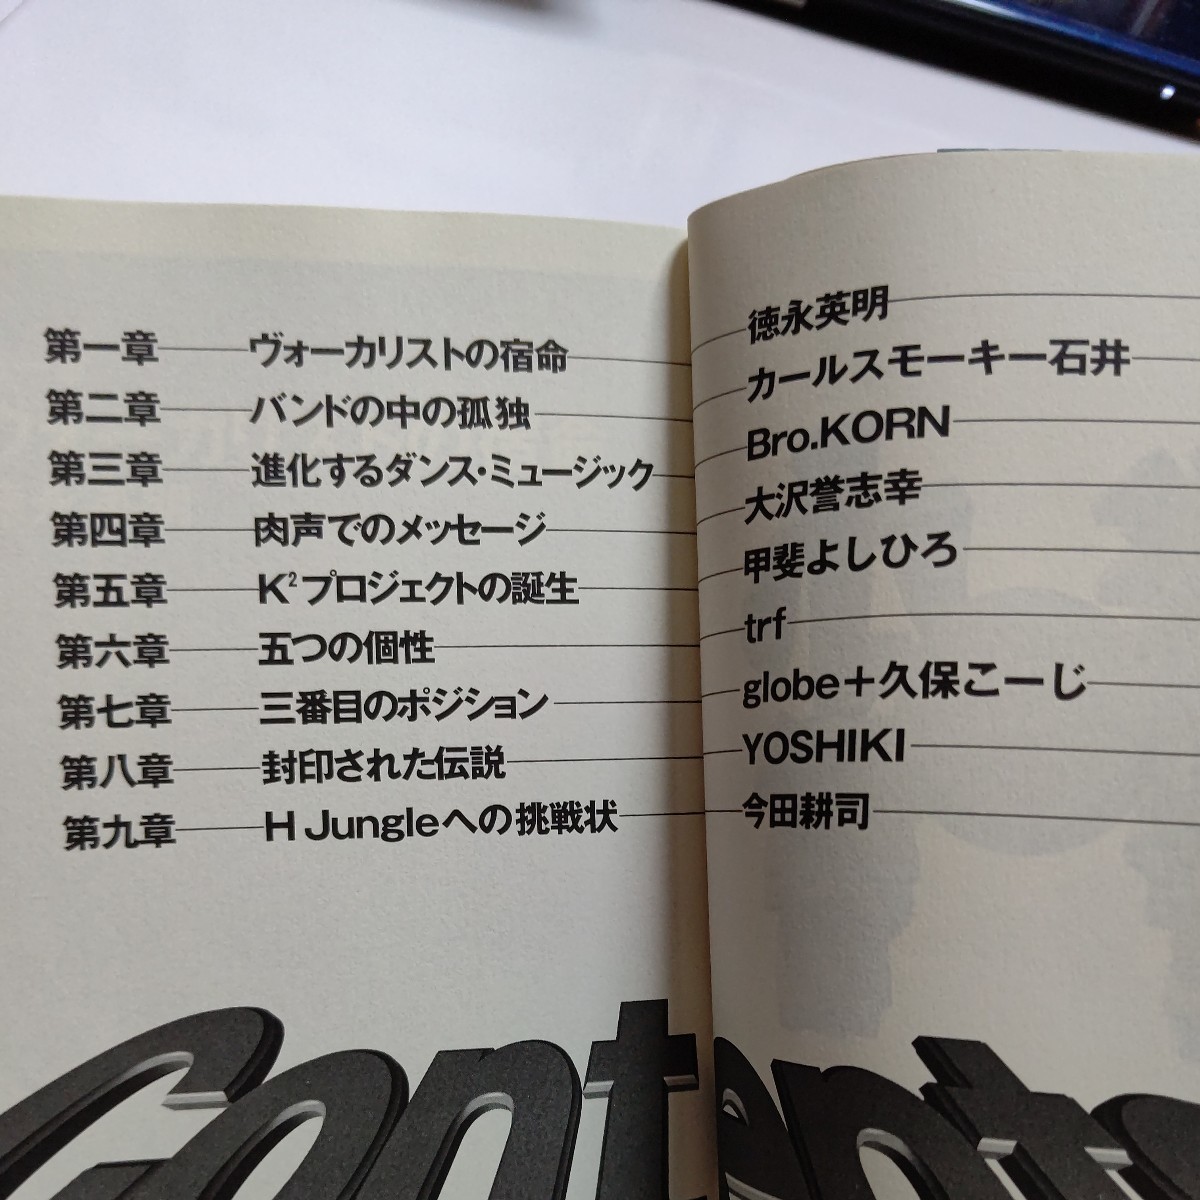 第一章 ヴォーカリストの宿命 徳永英明
第二章 バンドの中の孤独 カールスモーキー石井
第三章 進化するダンス・ミュージック Bro.KORN
第四章 肉声でのメッセージ 大沢誉志幸
第五章 K²プロジェクトの誕生 甲斐よしひろ
第六章 五つの個性 trf
第七章 三番目のポジション globe+久保こーじ
第八章 封印された伝説 YOSHIKI
第九章 H Jungleへの挑戦状 今田耕司
Contents